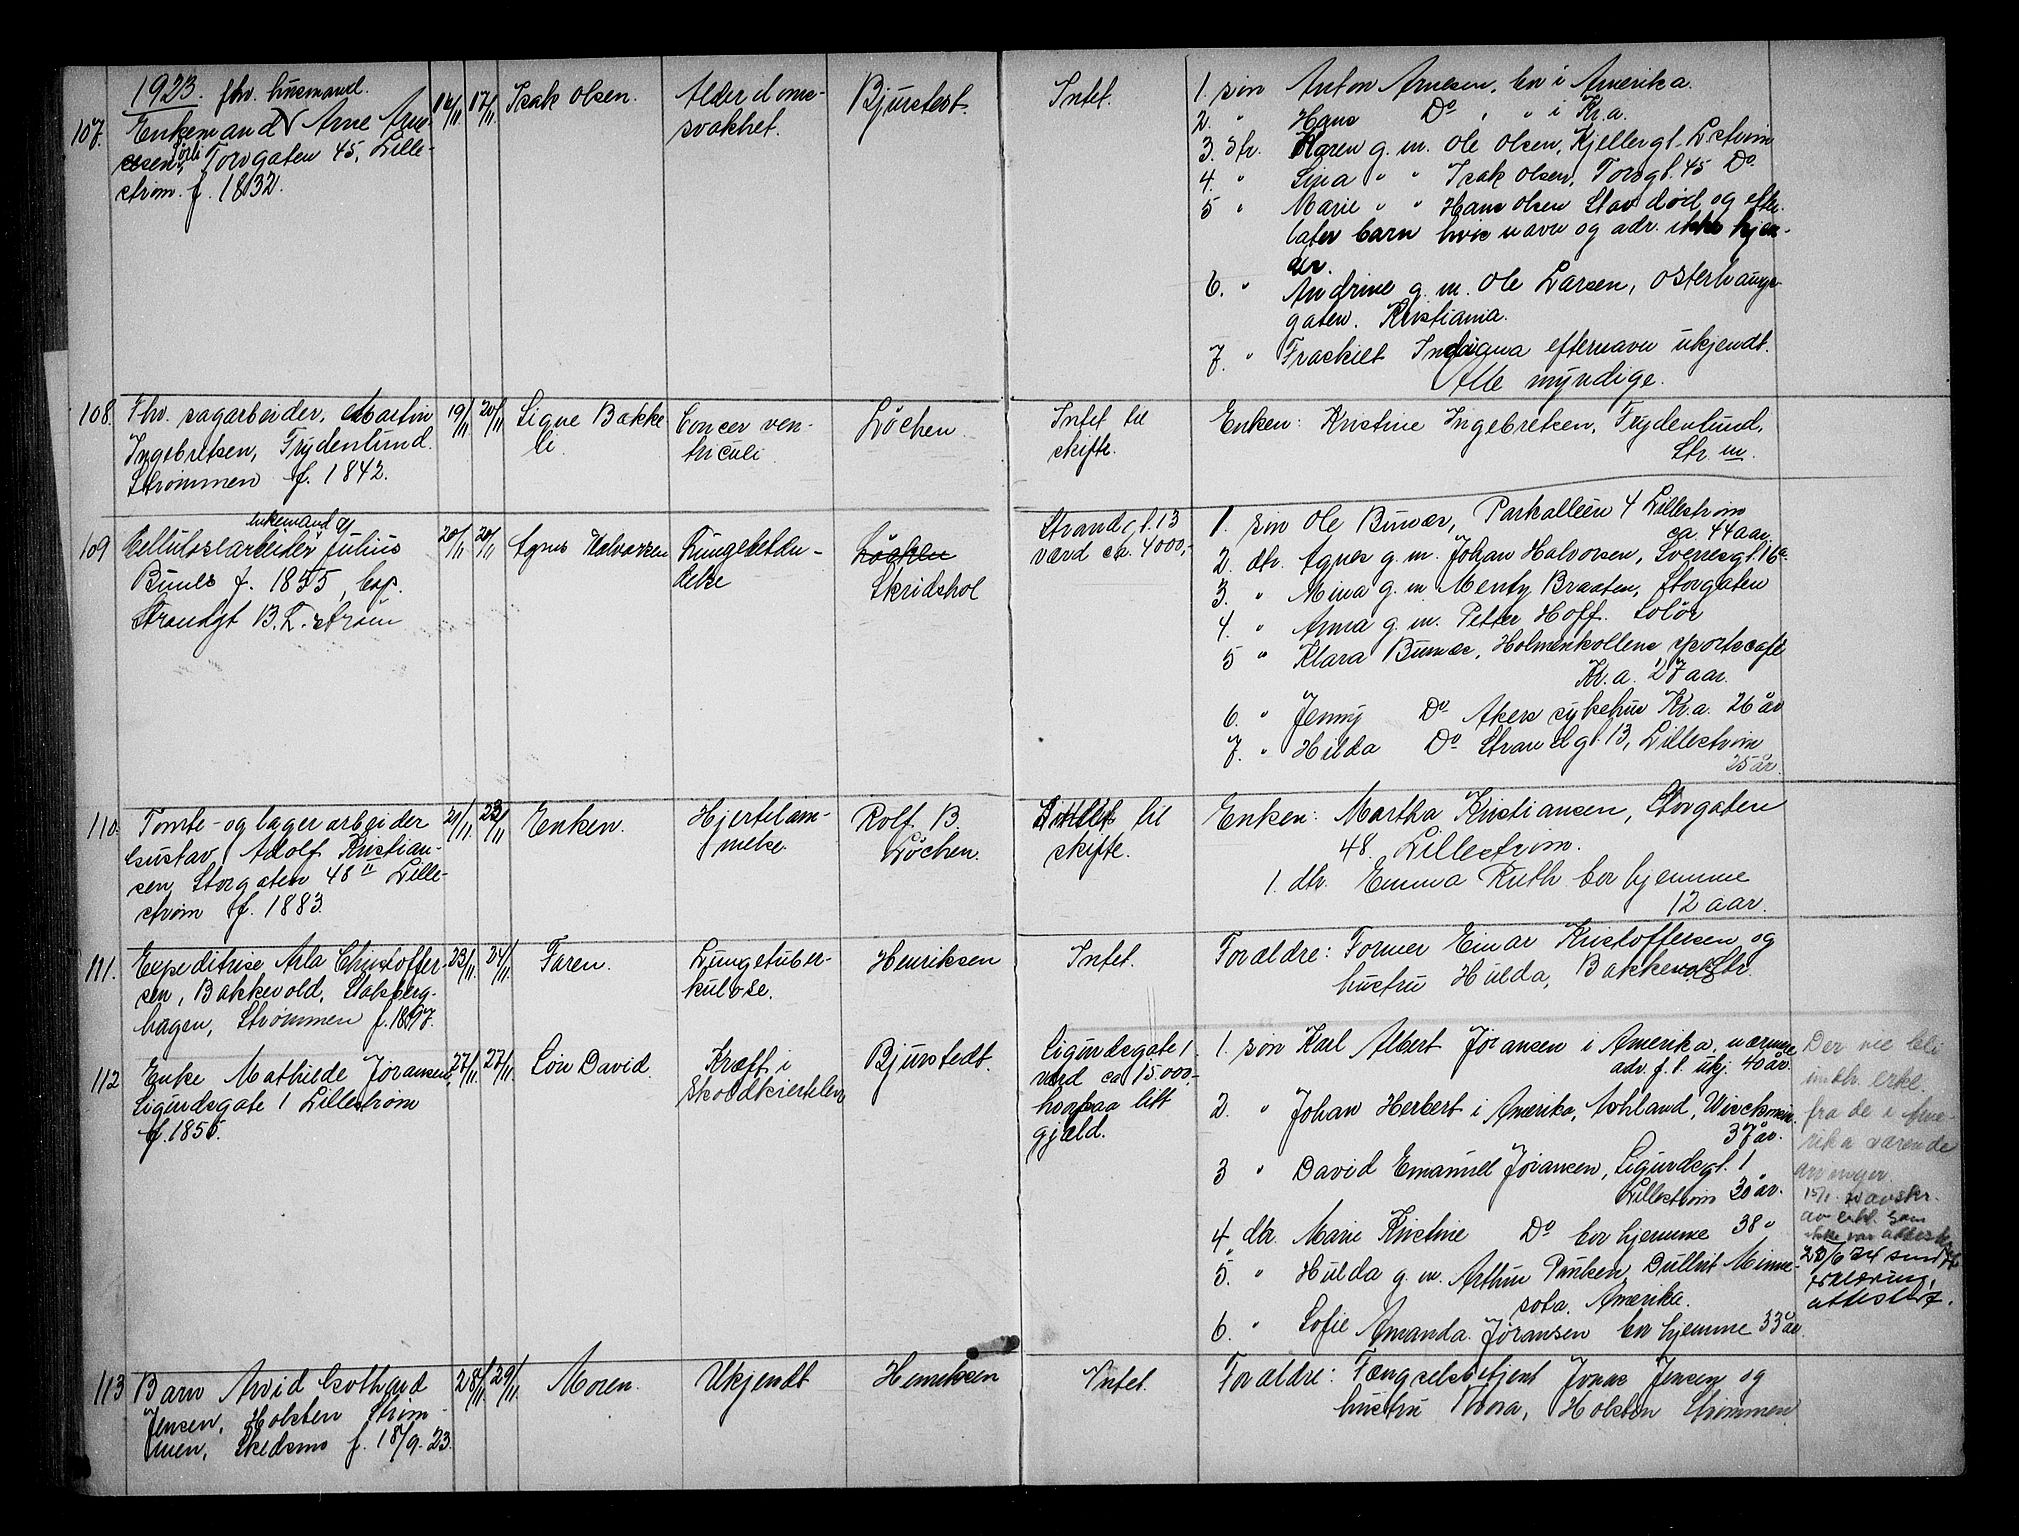 1923. fhv. husmand.
107. Enkemand Arne Arne-
sen, Torvgaten 45, Lille-
strøm. f. 1832.
14/11 17/11 Isak Olsen.
Alderdoms-
svakhet.
Bjurstedt.
Intet.
1. søn Anton Arnesen, bor i Amerika.
2. " Hans Do " " i Kr.a.
3. dtr. Karen g. m. Ole Olsen, Kjellergt. L.strøm
4. " Lina " " Isak Olsen, Torvgt. 45 Do.
5 " Marie " " Hans Olsen Stav død og efter-
later barn hvis navn og adr. ikke kjen-
des.
6. " Andrine g. m. Ole Larsen, Østerhaugs-
gaten. Kristiania.
7 " Fraskilt Indiana efternavn ukjendt.
Alle myndige.
108. Fhv. sagarbeider, Martin
Ingebretsen, Frydenlund.
Strømmen f. 1842.
19/11 20/11 Signe Bakke
li.
Cancer ven-
triculi.
Løchen.
Intet til
skifte.
Enken: Kristine Ingebretsen, Frydenlund,
Str. m.
enkemand
109 Cellulosearbeider Julius
Bunes f. 1855, bop.
Strandgt 13. L.strøm
20/11 20/11 Agnes Halvorsen
Lungebetæn-
delse
Løchen
Skridshol
Strandgt. 13
værd ca. 4000,-
1. søn Ole Bunæs, Parkalleen 4 Lillestrøm
ca. 44 aar.
2. dtr. Agnes g. m. Johan Halvorsen, Sverresgt. 16a
3. " Mina g. m Menty Braaten, Storgaten
4. " Anna g. m. Petter Hoff. Solør
5 " Klara Bunæs, Holmenkollens sportscafé
Kr.a. 27 aar.
6. " Jenny Do Akers sykehus Kr.a. 26 år
7. " Hilda Do Strandgt. 13, Lillestrøm
25 år.
110. Tomte- og lagerarbeider
Gustav Adolf Kristian-
sen, Storgaten 48 II Lille-
strøm f. 1883.
21/11 22/11 Enken.
Hjertelam-
melse.
Rolf B.
Løchen.
til
skifte.
Enken: Martha Kristiansen, Storgaten
48. Lillestrøm.
1. dtr. Emma Ruth bor hjemme
12 aar.
111. Expeditrise Asta Christoffer-
sen, Bakkevold, Stalsberg-
hagen, Strømmen f. 1897.
23/11 24/11 Faren.
Lungetuber-
kulose.
Henriksen
Intet.
Forældre: Former Einar Kristoffersen og
hustru Hulda, Bakkevold Str.
112 Enke Mathilde Jøransen,
Sigurdsgate 1 Lillestrøm
f. 1856.
27/11 27/11 Søn David.
Kræft i
skjoldkjertelen
Bjurstedt.
Sigurdsgate 1
værd ca 15000,-
hvorpaa litt
gjæld.
1. søn Karl Albert Jøransen i Amerika, nærmere
adr. f. t. ukj. 40 år.
2. " Johan Herbert i Amerika, Ashland, Wisckonsin.
37 år.
3 " David Emanuel Jøransen, Sigurdsgt. 1
Lillestrøm 30 år.
4 dtr. Marie Kristine Do bor hjemme 38 "
5. " Hulda g. m. Arthur Paulsen, Dulluth Minne-
sota. Amerika.
6. " Sofie Amanda Jøransen bor hjemme 33 år.
Der vil bli
indh. erkl.
fra de i Ame-
rika værende
arvinger.
15/1
av erkl. som
ikke var attestert
20/6 24 sendt
erklæring,
attestert.
113 Barn Arvid Gothard
Jensen, Holsten Strøm-
men, Skedsmo f. 18/9. 23.
28/11 29/11 Moren.
Ukjendt
Henriksen
Intet.
Forældre: Fængselsbetjent Jonas Jensen og
hustru Thora, Holsten Strømmen.